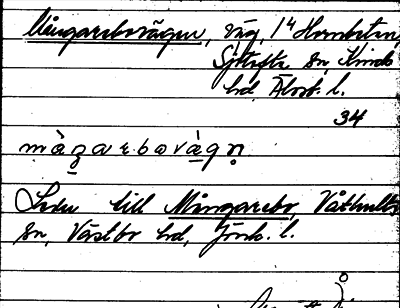 Mångarebovägen, väg, 14 Hornbeten,
Sjötofta sn, Kinds
hd, Älvsb. l.
34
Leder till Mångarebo, Våthults
sn, Västbo hd, Jönk. l.